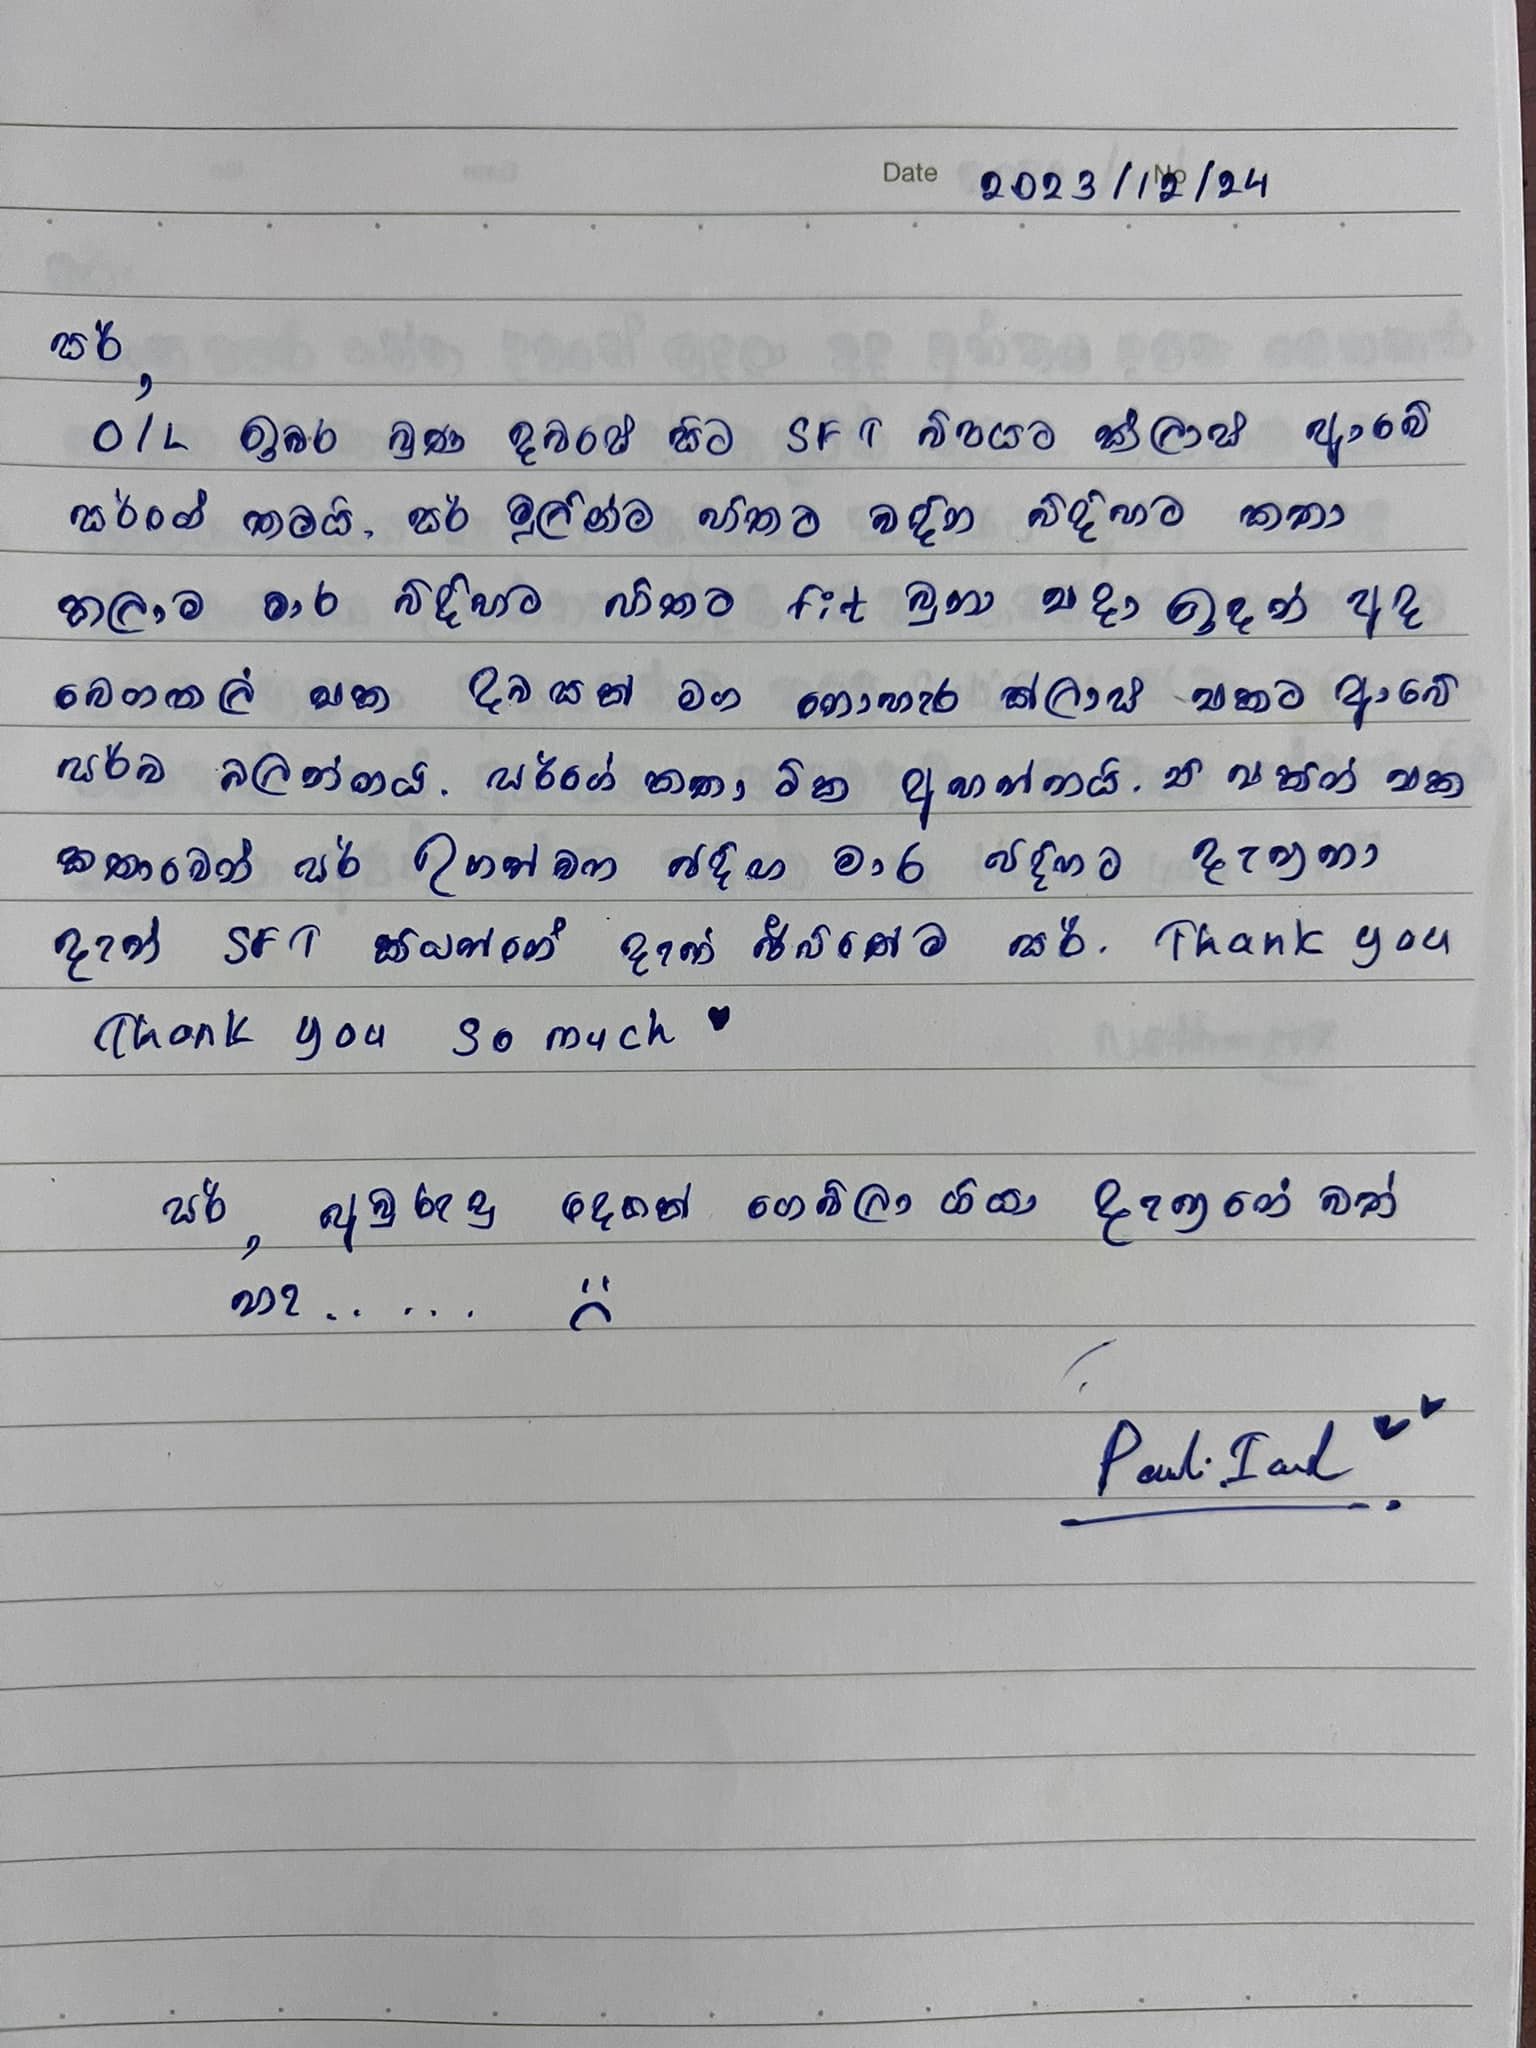 Date 2023/12/24
No
සර්,
O/L ඉවර වුණ දවසේ සිට SFT විෂයට ක්ලාස් ආවේ
සර්ගෙ තමයි. සර් මුලින්ම හිතට වදින විදිහට කතා
කලාම මාර විදිහට හිතට fit වුනා එදා ඉදන් අද
වෙනකල් එක දවසක් මග නොහැර ක්ලාස් එකට ආවේ
සර්ව බලන්නයි. සර්ගේ කතා ටික අහන්නයි. ඒ එකින් එක
කතාවෙන් සර් උගන්වන විදිහ මාර විදිහට දැනුනා
දැන් SFT කියන්නේ දැන් ජීවිතේම සර්. Thank you
Thank you so much ♥
සර්, අවුරුදු දෙකක් ගෙවිලා ගියා දැනුනේ වත්
නැ.. ...